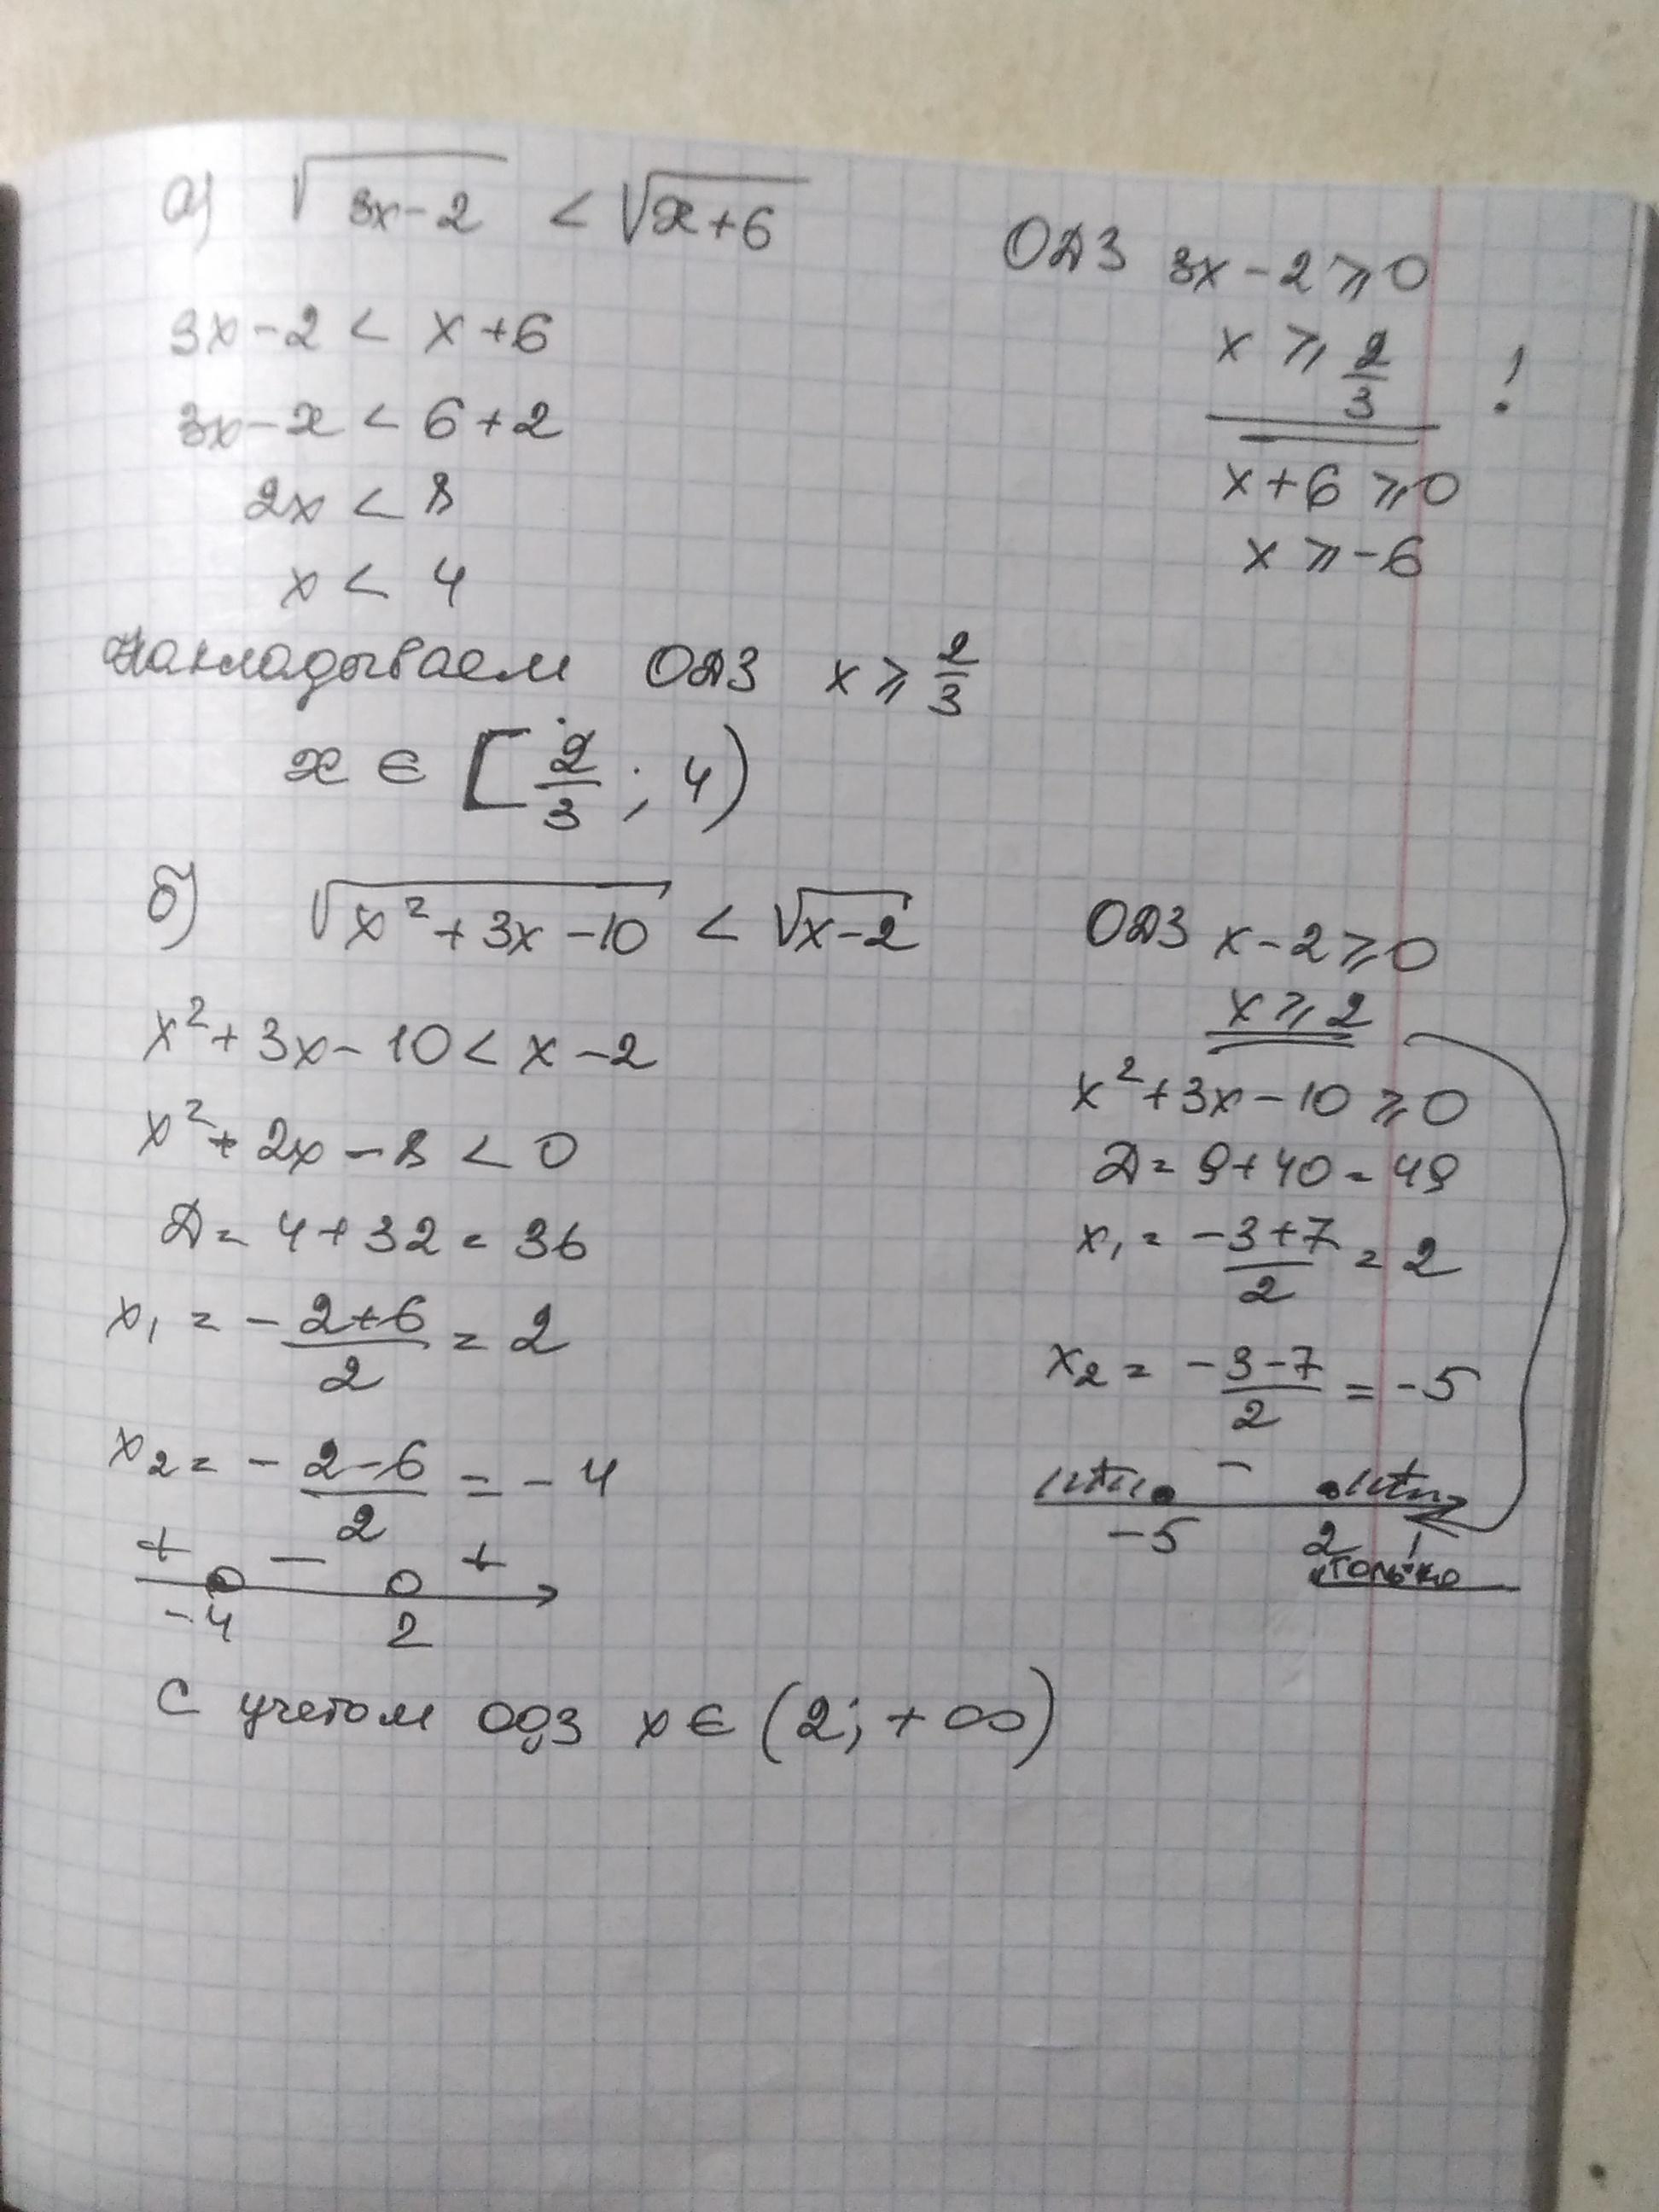 а) √(3x-2) < √(x+6)
ОДЗ 3x-2 ⩾ 0
x ⩾ 2/3 !
x+6 ⩾ 0
x ⩾ -6
3x-2 < x+6
3x-x < 6+2
2x < 8
x < 4
Накладываем ОДЗ x ⩾ 2/3
x ∈ [2/3; 4)
б) √(x²+3x-10) < √(x-2)
ОДЗ x-2 ⩾ 0
x ⩾ 2
x²+3x-10 ⩾ 0
Д = 9+40 = 49
x₁ = (-3+7)/2 = 2
x₂ = (-3-7)/2 = -5
+ - +
-5 2
"только
x²+3x-10 < x-2
x²+2x-8 < 0
Д = 4+32 = 36
x₁ = -(2+6)/2 = 2
x₂ = -(2-6)/2 = -4
+ - +
-4 2
С учетом одз x ∈ (2; +∞)